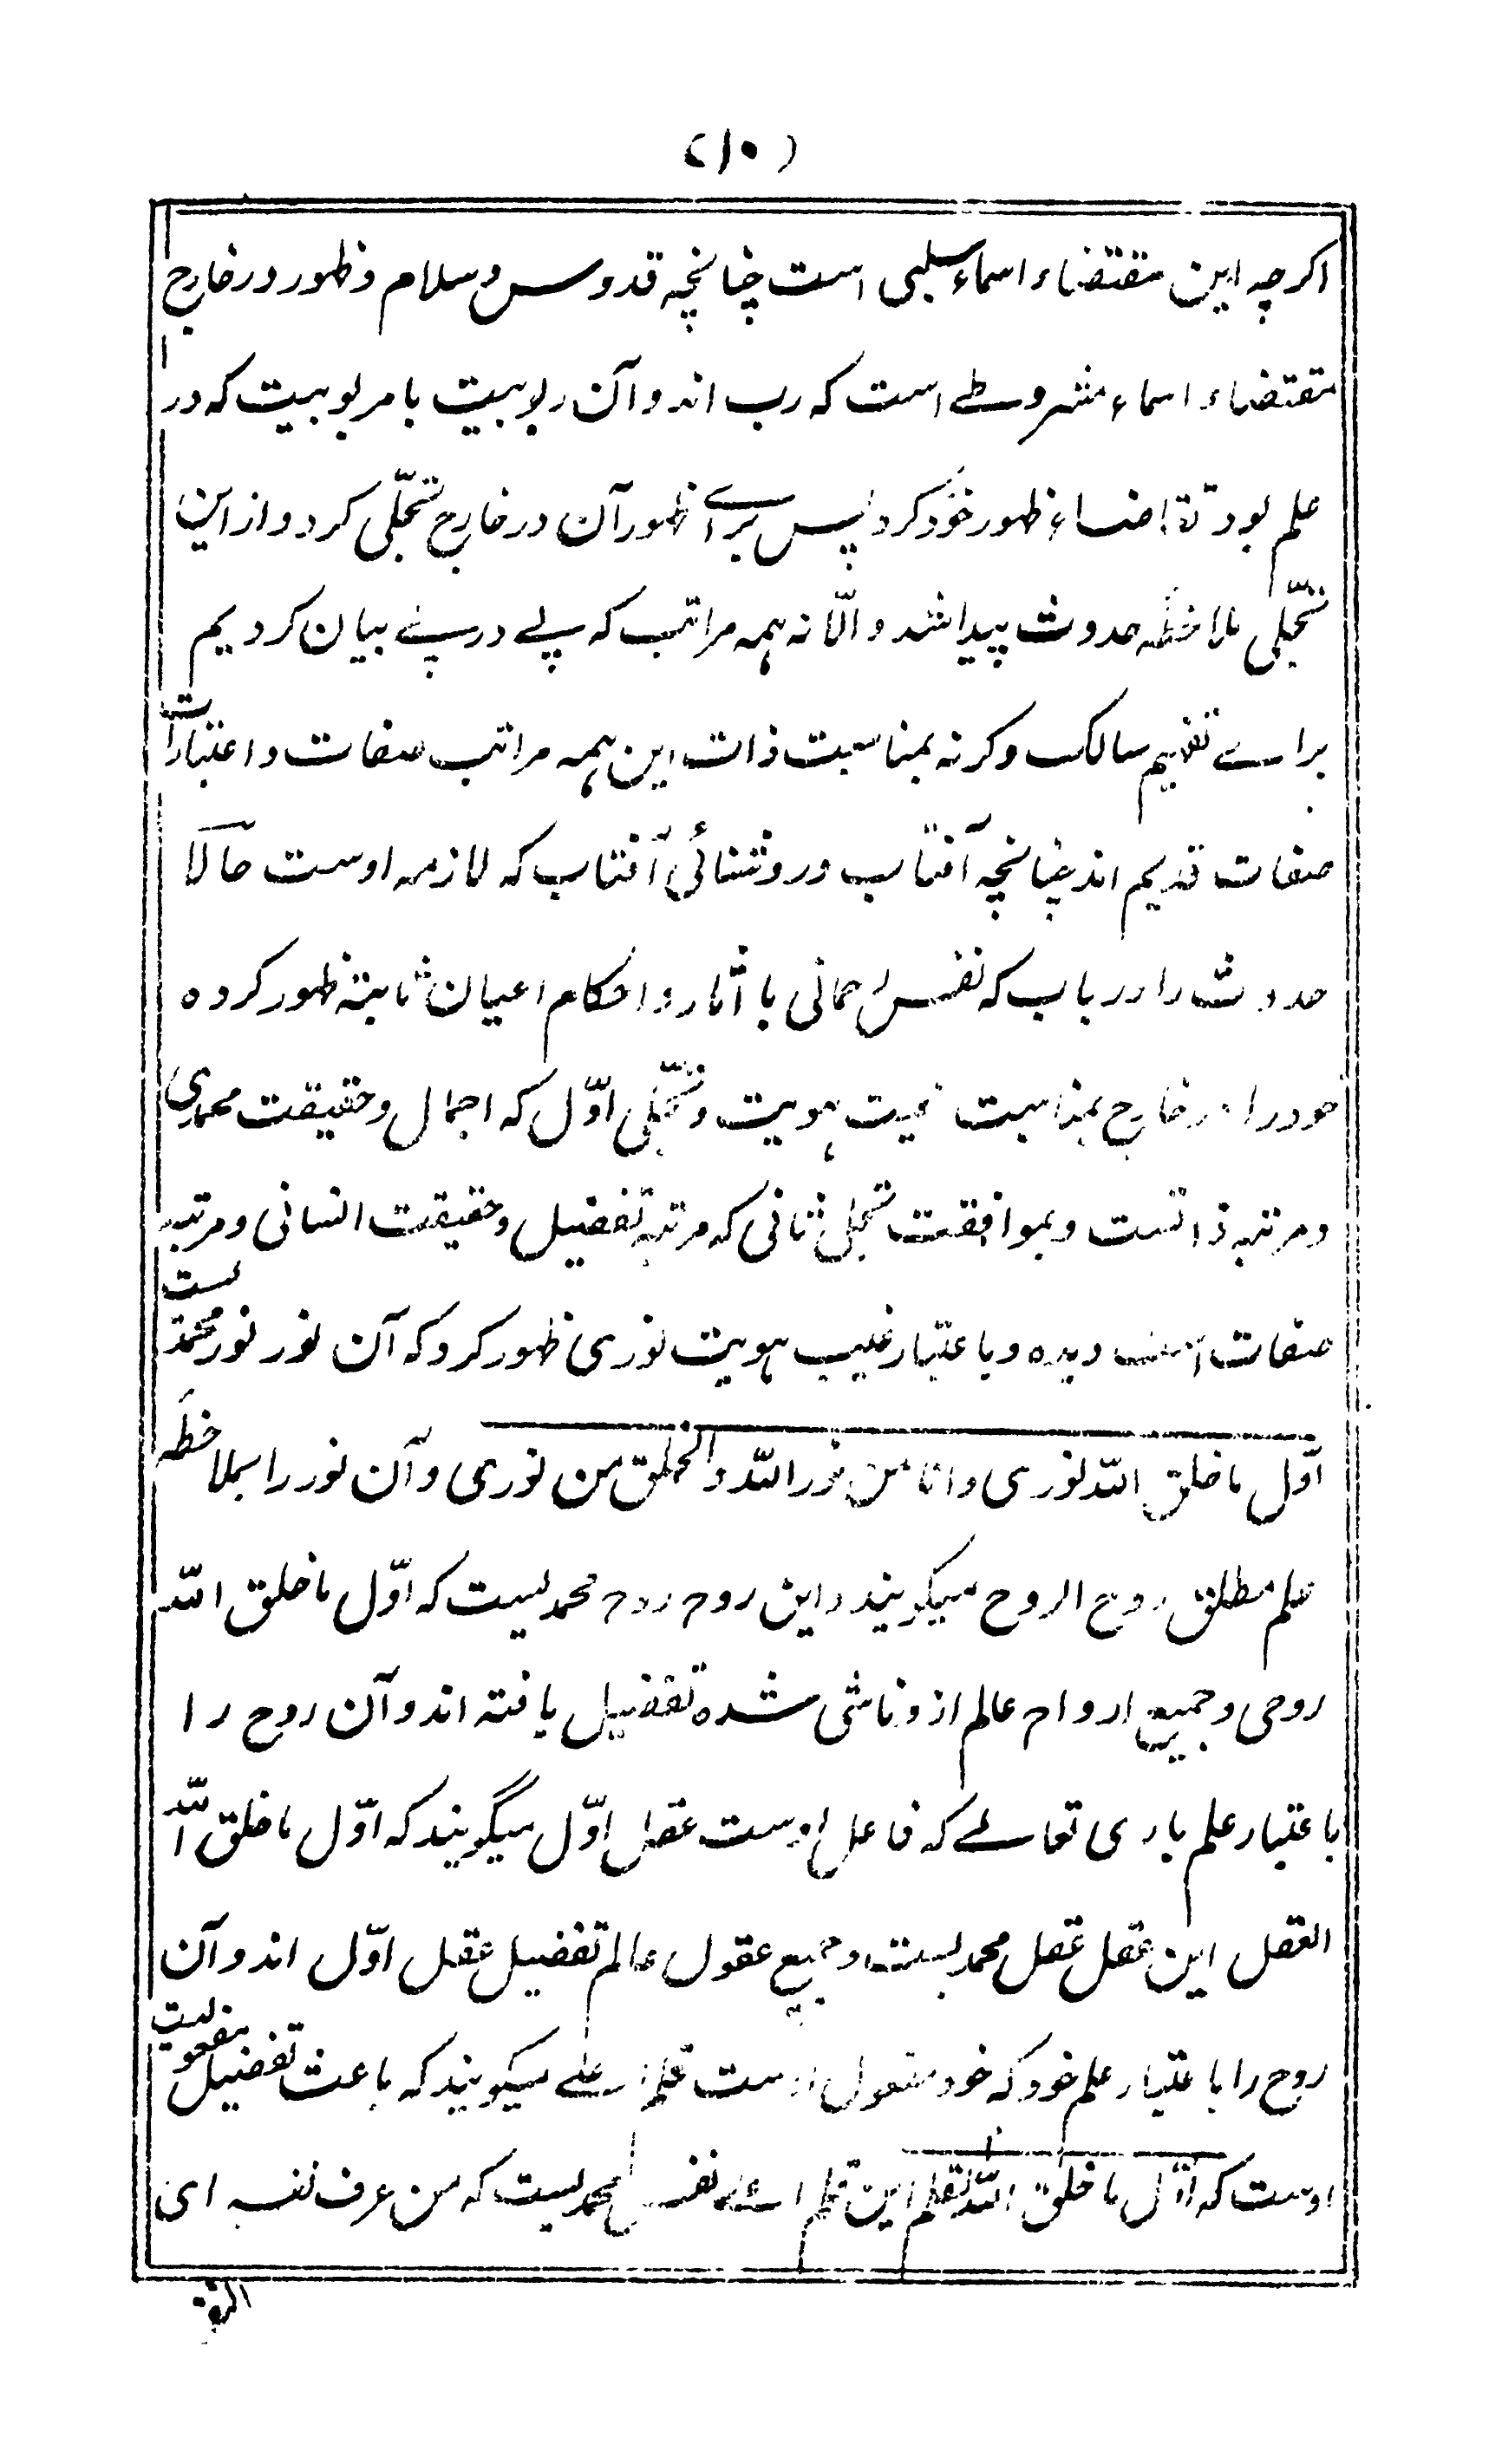 (۱۰)
اگرچہ این مقتضاء اسماء سلبی است چنانچہ قدوس و سلام و ظہور در خارج
مقتضاء اسماء مشروطے است کہ رب اند و آن ربوبیت با مربوبیت کہ در
علم بود تقاضاء ظہور خود کرد پس براے ظہور آن در خارج تجلّی کرد و از این
تجلّی ملاحظہ حدوث پیدا شد و الّا نہ ہمہ مراتب کہ پے در پے بیان کردیم
براے تفہیم سالک وگرنہ بمناسبت ذات این ہمہ مراتب صفات و اعتبارات
صفات قدیم اند چنانچہ آفتاب و روشنائی آفتاب کہ لازمہ اوست حالا
حدوث را دریاب کہ نفس رحمانی با آثار و احکام اعیان ثابتہ ظہور کردہ
خود را در خارج بمناسبت غیبت ہویت و تجلّی اوّل کہ اجمال و حقیقت محمدی
و مرتبہ ذاتست و بموافقت تجلی ثانی کہ مرتبہ تفصیل و حقیقت انسانی و مرتبہ
صفات است دیدہ و باعتبار غیب ہویت نوری ظہور کرد کہ آن نور نور محمدیست
اوّل ما خلق اللّہ نوری و انا من نور اللّہ والخلق من نوری و آن نور را بملاحظہ
علم مطلق روح الروح میگویند و این روح روح محمدیست کہ اوّل ما خلق اللّہ
روحی و جمیع ارواح عالم ازو ناشی شدہ تفصیل یافتہ اند و آن روح را
باعتبار علم باری تعالے کہ فاعل اوست عقل اوّل میگویند کہ اوّل ما خلق اللّہ
العقل این عقل عقل محمدیست و جمیع عقول عالم تفصیل عقل اوّل اند و آن
روح را باعتبار علم خود کہ خود مفعول اوست قلم اعلے میگویند کہ باعث تفصیل مفعولیت
اوست کہ اوّل ما خلق اللّہ القلم این قلم اعلے نفس محمدیست کہ من عرف نفسہ ای